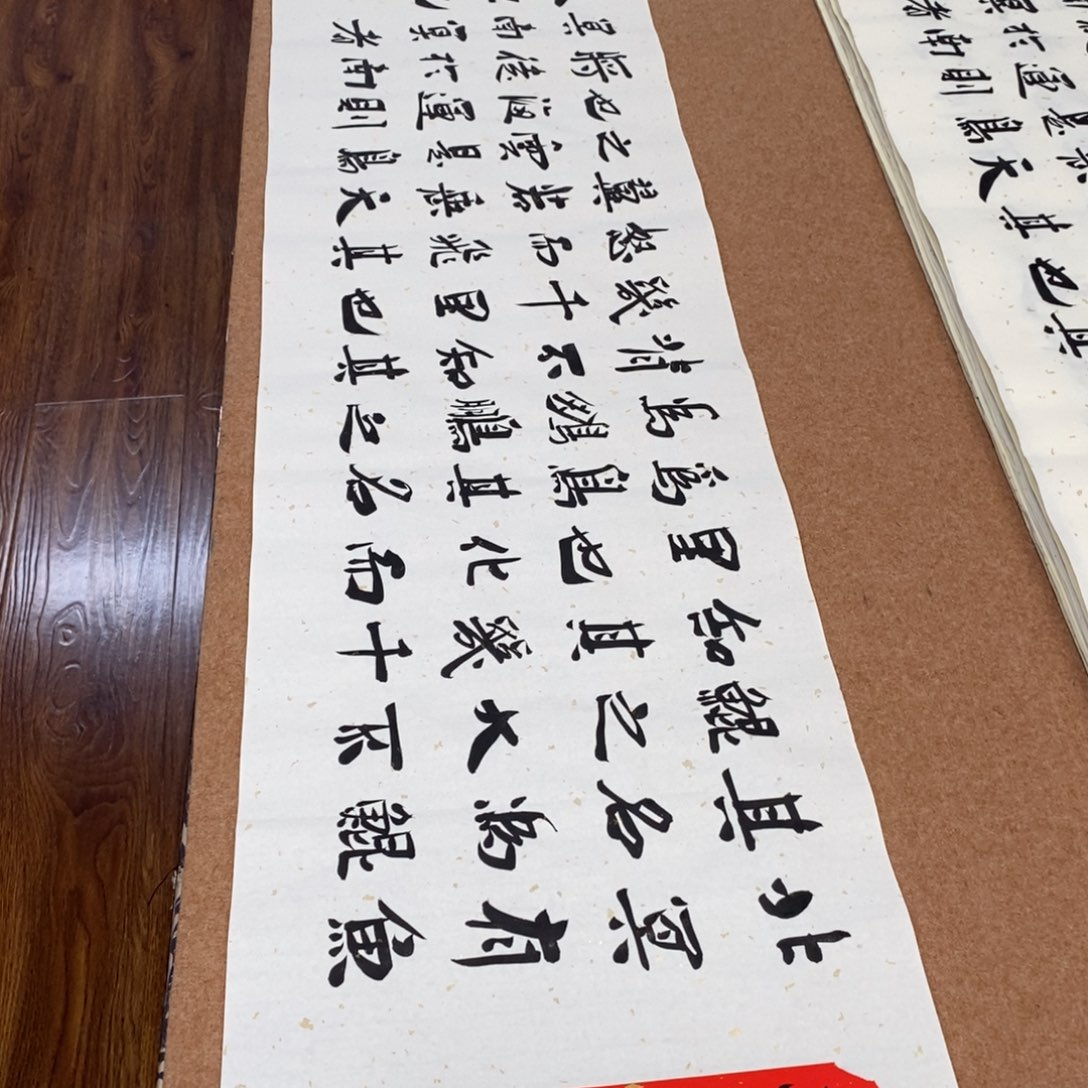 北冥有魚
其名為鯤
鯤之大不
知其幾千
里也化而
為鳥其名
為鵬鵬之
背不知其
幾千里也
怒而飛其
翼若垂天
之雲是鳥
也海運則
將徙於南
冥南冥者
其
也
其
天
是鳥
運則
於南
冥者